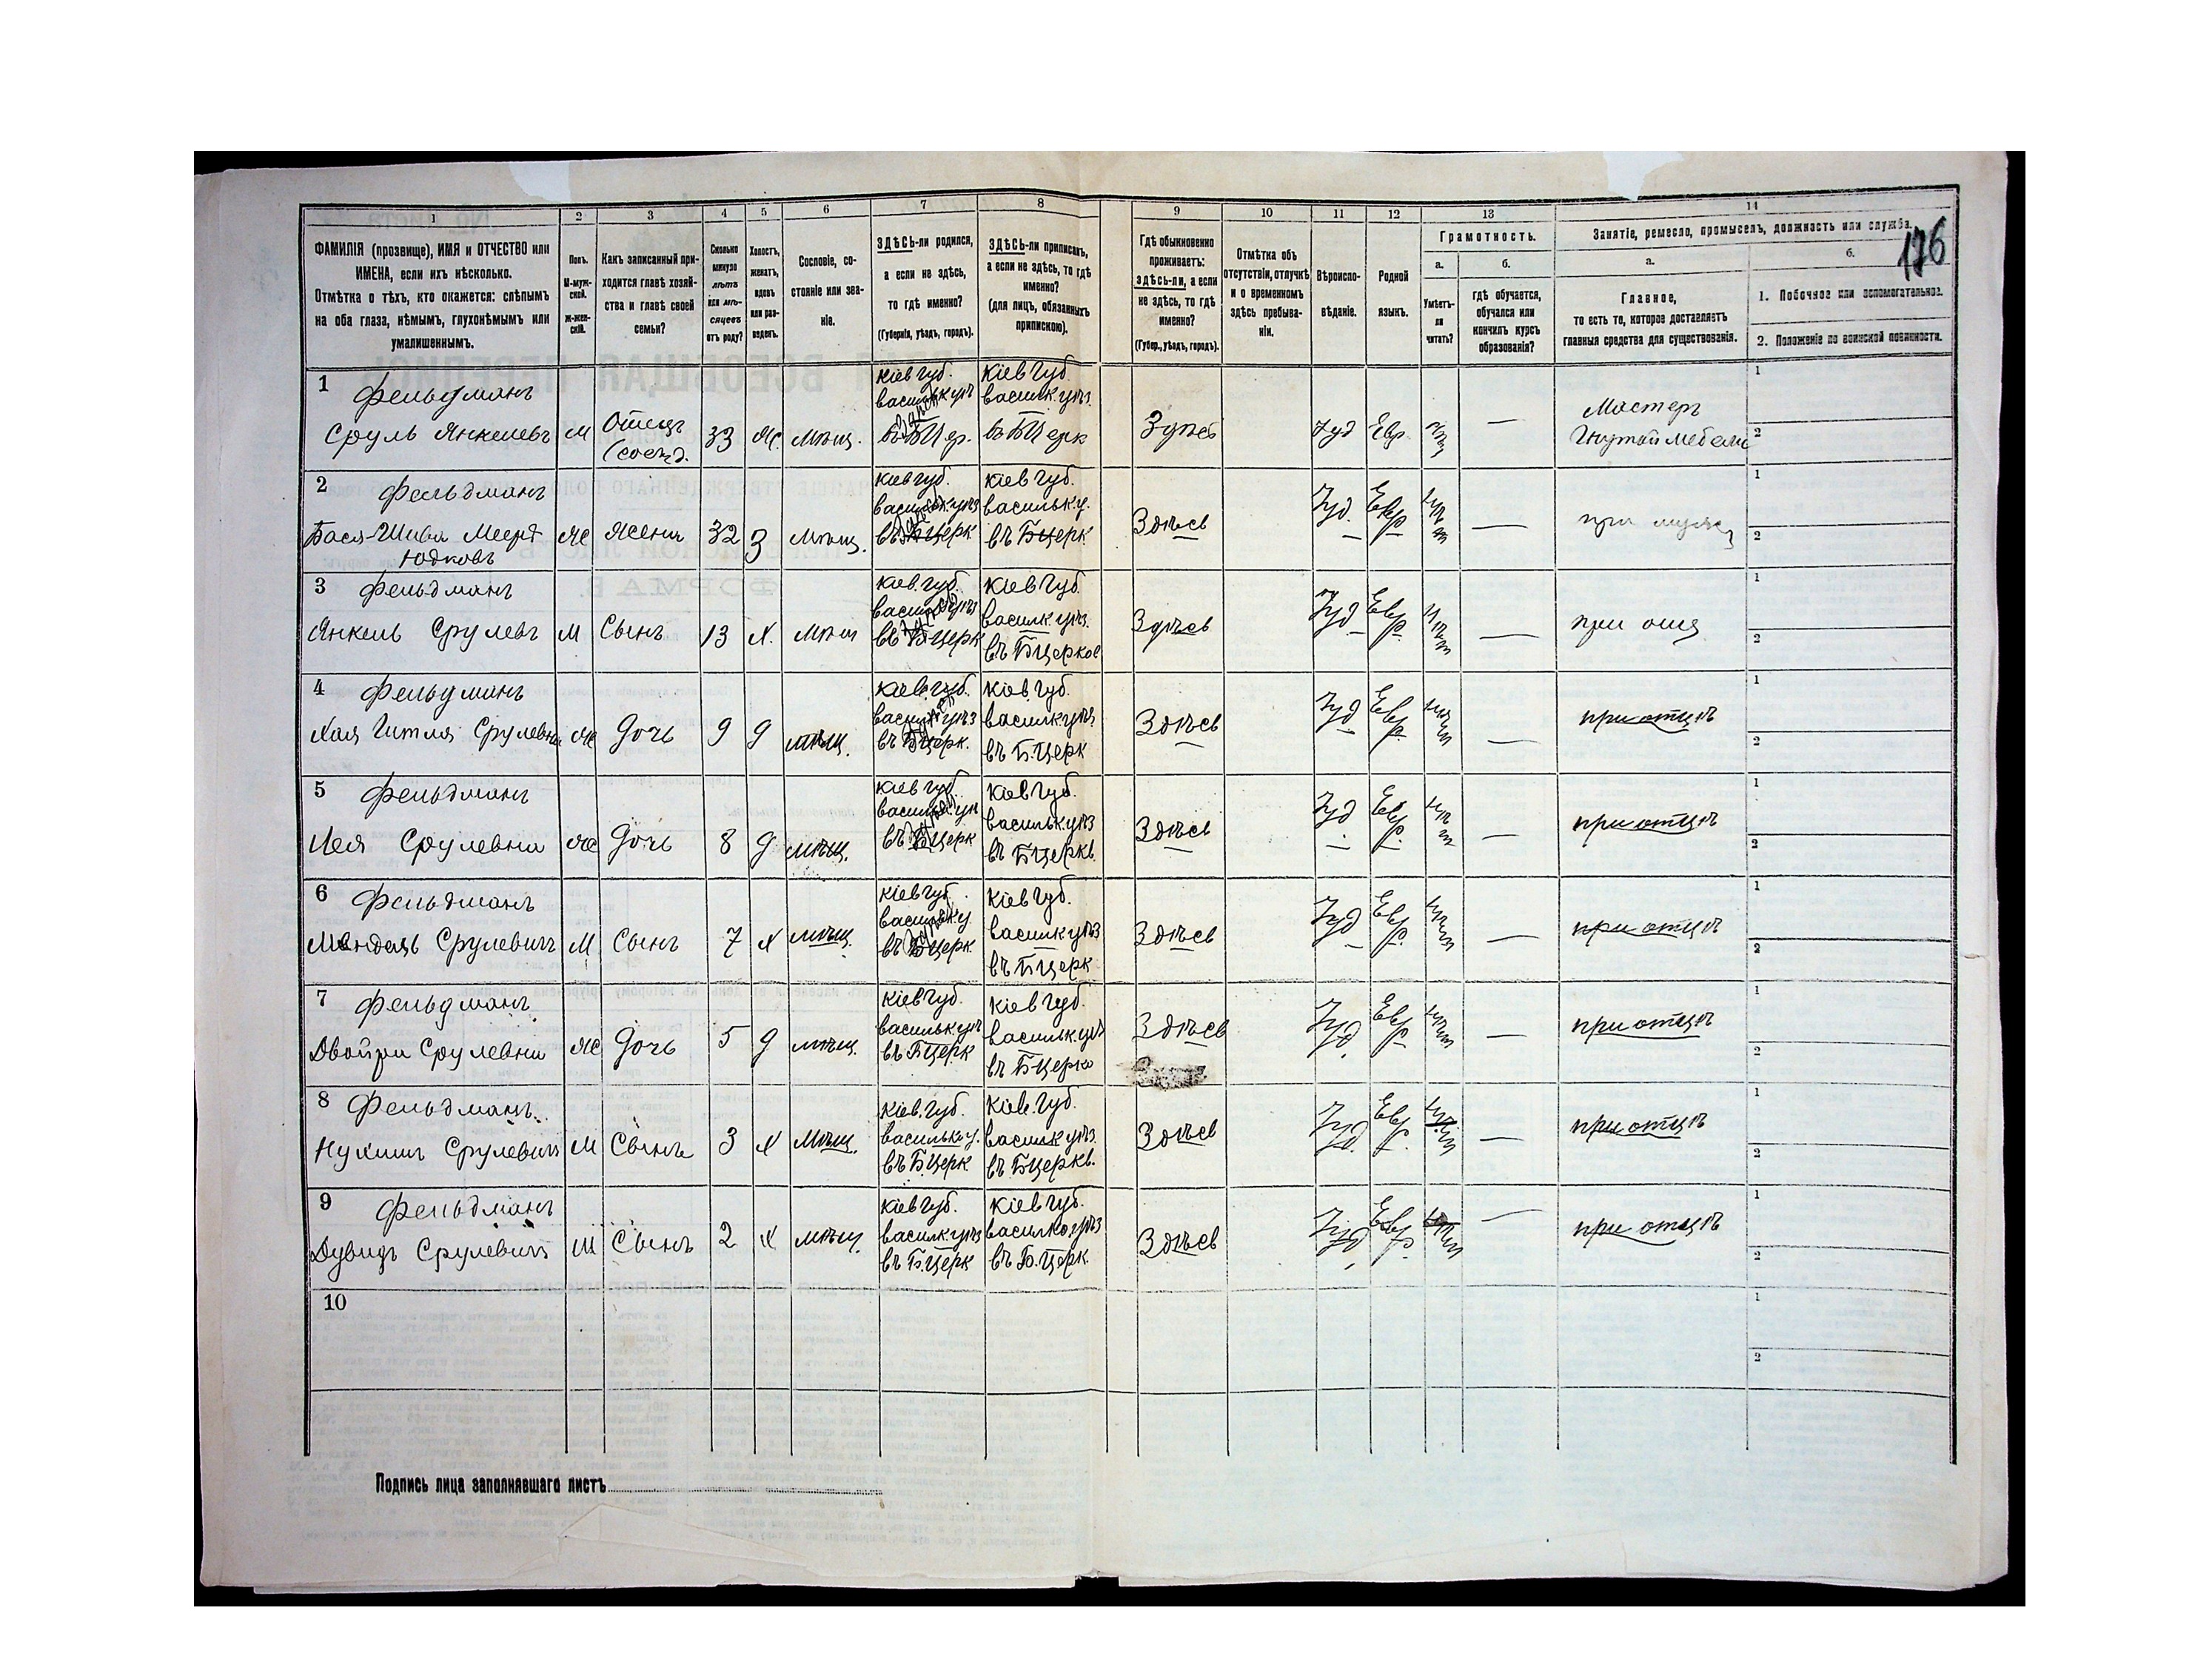 176
1 2 3 4 5 6 7 8 9 10 11 12 13 14
ФАМИЛІЯ (прозвище), ИМЯ и ОТЧЕСТВО или
ИМЕНА, если ихъ нѣсколько.
Отмѣтка о тѣхъ, кто окажется: слѣпымъ
на оба глаза, нѣмымъ, глухонѣмымъ или
умалишеннымъ.
Полъ.
М-муж-
ской.
ж-жен-
скій.
Какъ записанный при-
ходится главѣ хозяй-
ства и главѣ своей
семьи?
Сколько
минуло
лѣтъ
или мѣ-
сяцевъ
отъ роду?
Холостъ,
женатъ,
вдовъ
или раз-
веденъ.
Сословіе, со-
стояніе или зва-
ніе.
ЗДѢСЬ-ли родился,
а если не здѣсь,
то гдѣ именно?
(Губернія, уѣздъ, городъ).
ЗДѢСЬ-ли приписанъ,
а если не здѣсь, то гдѣ
именно?
(для лицъ, обязанныхъ
припискою).
Гдѣ обыкновенно
проживаетъ:
здѣсь-ли, а если
не здѣсь, то гдѣ
именно?
(Губер., уѣздъ, городъ).
Отмѣтка объ
отсутствіи, отлучкѣ
и о временномъ
здѣсь пребыва-
ніи.
Вѣроиспо-
вѣданіе.
Родной
языкъ.
Грамотность.
а.
Умѣетъ-
ли
читать?
б.
гдѣ обучается,
обучался или
кончилъ курсъ
образованія?
Занятіе, ремесло, промыселъ, должность или служба.
а.
Главное,
то есть то, которое доставляетъ
главныя средства для существованія.
б.
1. Побочное или вспомогательное.
2. Положеніе по воинской повинности.
1 Фельдманъ
Сруль Янкелевъ М Отецъ 33 Ж. мѣщ. Кіев губ. Кіев губ. василк. уѣз. Здѣсь Іуд Евр. — Мастеръ
Гнутой мебели
1
2
2 Фельдманъ
Бася-Шива Меерд Ж Жена 32 З мѣщ. Кіев губ. въ Б Церк Кіев губ. васильк. у. въ Б Церк Здѣсь Іуд. Евр — при муже
Юдковъ
1
2
3 Фельдманъ
Янкель Срулевъ М Сынъ 13 Х. мѣщ Кіев. губ. въ Б Церк Кіев губ. василк уѣз. въ Б Церков Здѣсь Іуд Евр. — при отц
1
2
4 Фельдманъ
Хая Гитля Срулевна Ж Дочь 9 д мѣщ. Кіев губ. въ Б Церк. Кіев губ. василк уѣз. въ Б. Церк Здѣсь Іуд Евр. — при отцѣ
1
2
5 Фельдманъ
Лея Срулевна Ж Дочь 8 д мѣщ. Кіев губ. въ Б Церк Кіев губ. васильк. уѣз въ Б Церкв. Здѣсь Іуд Евр. — при отцѣ
1
2
6 Фельдманъ
Мендель Срулевичъ М Сынъ 7 х мѣщ. Кіев губ. въ Б Церк Кіев губ. василк уѣз въ Б Церк Здѣсь Іуд Евр. — при отцѣ
1
2
7 Фельдманъ
Двойра Срулевна Ж Дочь 5 д мѣщ. Кіев губ. васильк. уѣз въ Б Церк Кіев губ. васильк. уѣз въ Б Церко Здѣсь Іуд. Евр — при отцѣ
1
2
8 Фельдманъ
Нухимъ Срулевичъ М Сынъ 3 х мѣщ. Кіев. губ. васильк у. въ Б Церк Кіев. губ. василк уѣз. въ Б Церкв. Здѣсь Іуд. Евр. — при отцѣ
1
2
9 Фельдманъ
Дувидъ Срулевичъ М Сынъ 2 х мѣщ. Кіев губ. василк уѣз въ Б. Церк Кіев губ. василко уѣз въ Б. Церк. Здѣсь Іуд Евр. — при отцѣ
1
2
10
1
2
Подпись лица заполнявшаго листъ